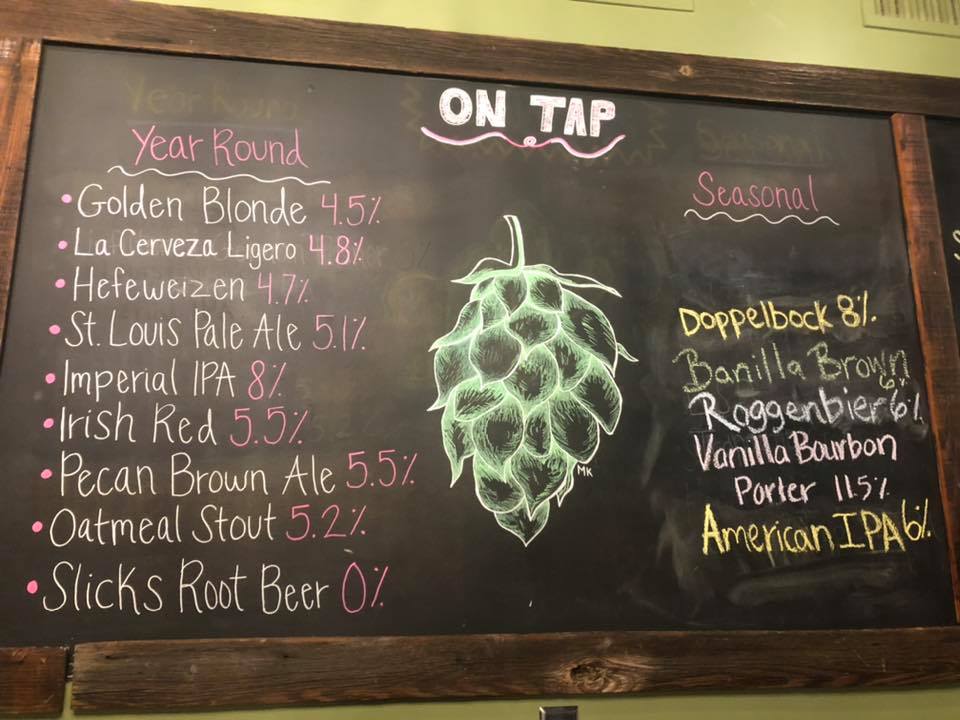 ON TAP
Year Round
• Golden Blonde 4.5%
• La Cerveza Ligero 4.8%
• Hefeweizen 4.7%
• St. Louis Pale Ale 5.1%
• Imperial IPA 8%
• Irish Red 5.5%
• Pecan Brown Ale 5.5%
• Oatmeal Stout 5.2%
• Slicks Root Beer 0%
MK
Seasonal
Doppelbock 8%
Banilla Brown
6%
Roggenbier 6%
Vanilla Bourbon
Porter 11.5%
American IPA 6%